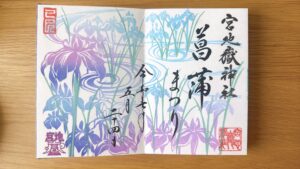 宮地嶽神社
菖蒲
まつり
令和七年
五月二十四日